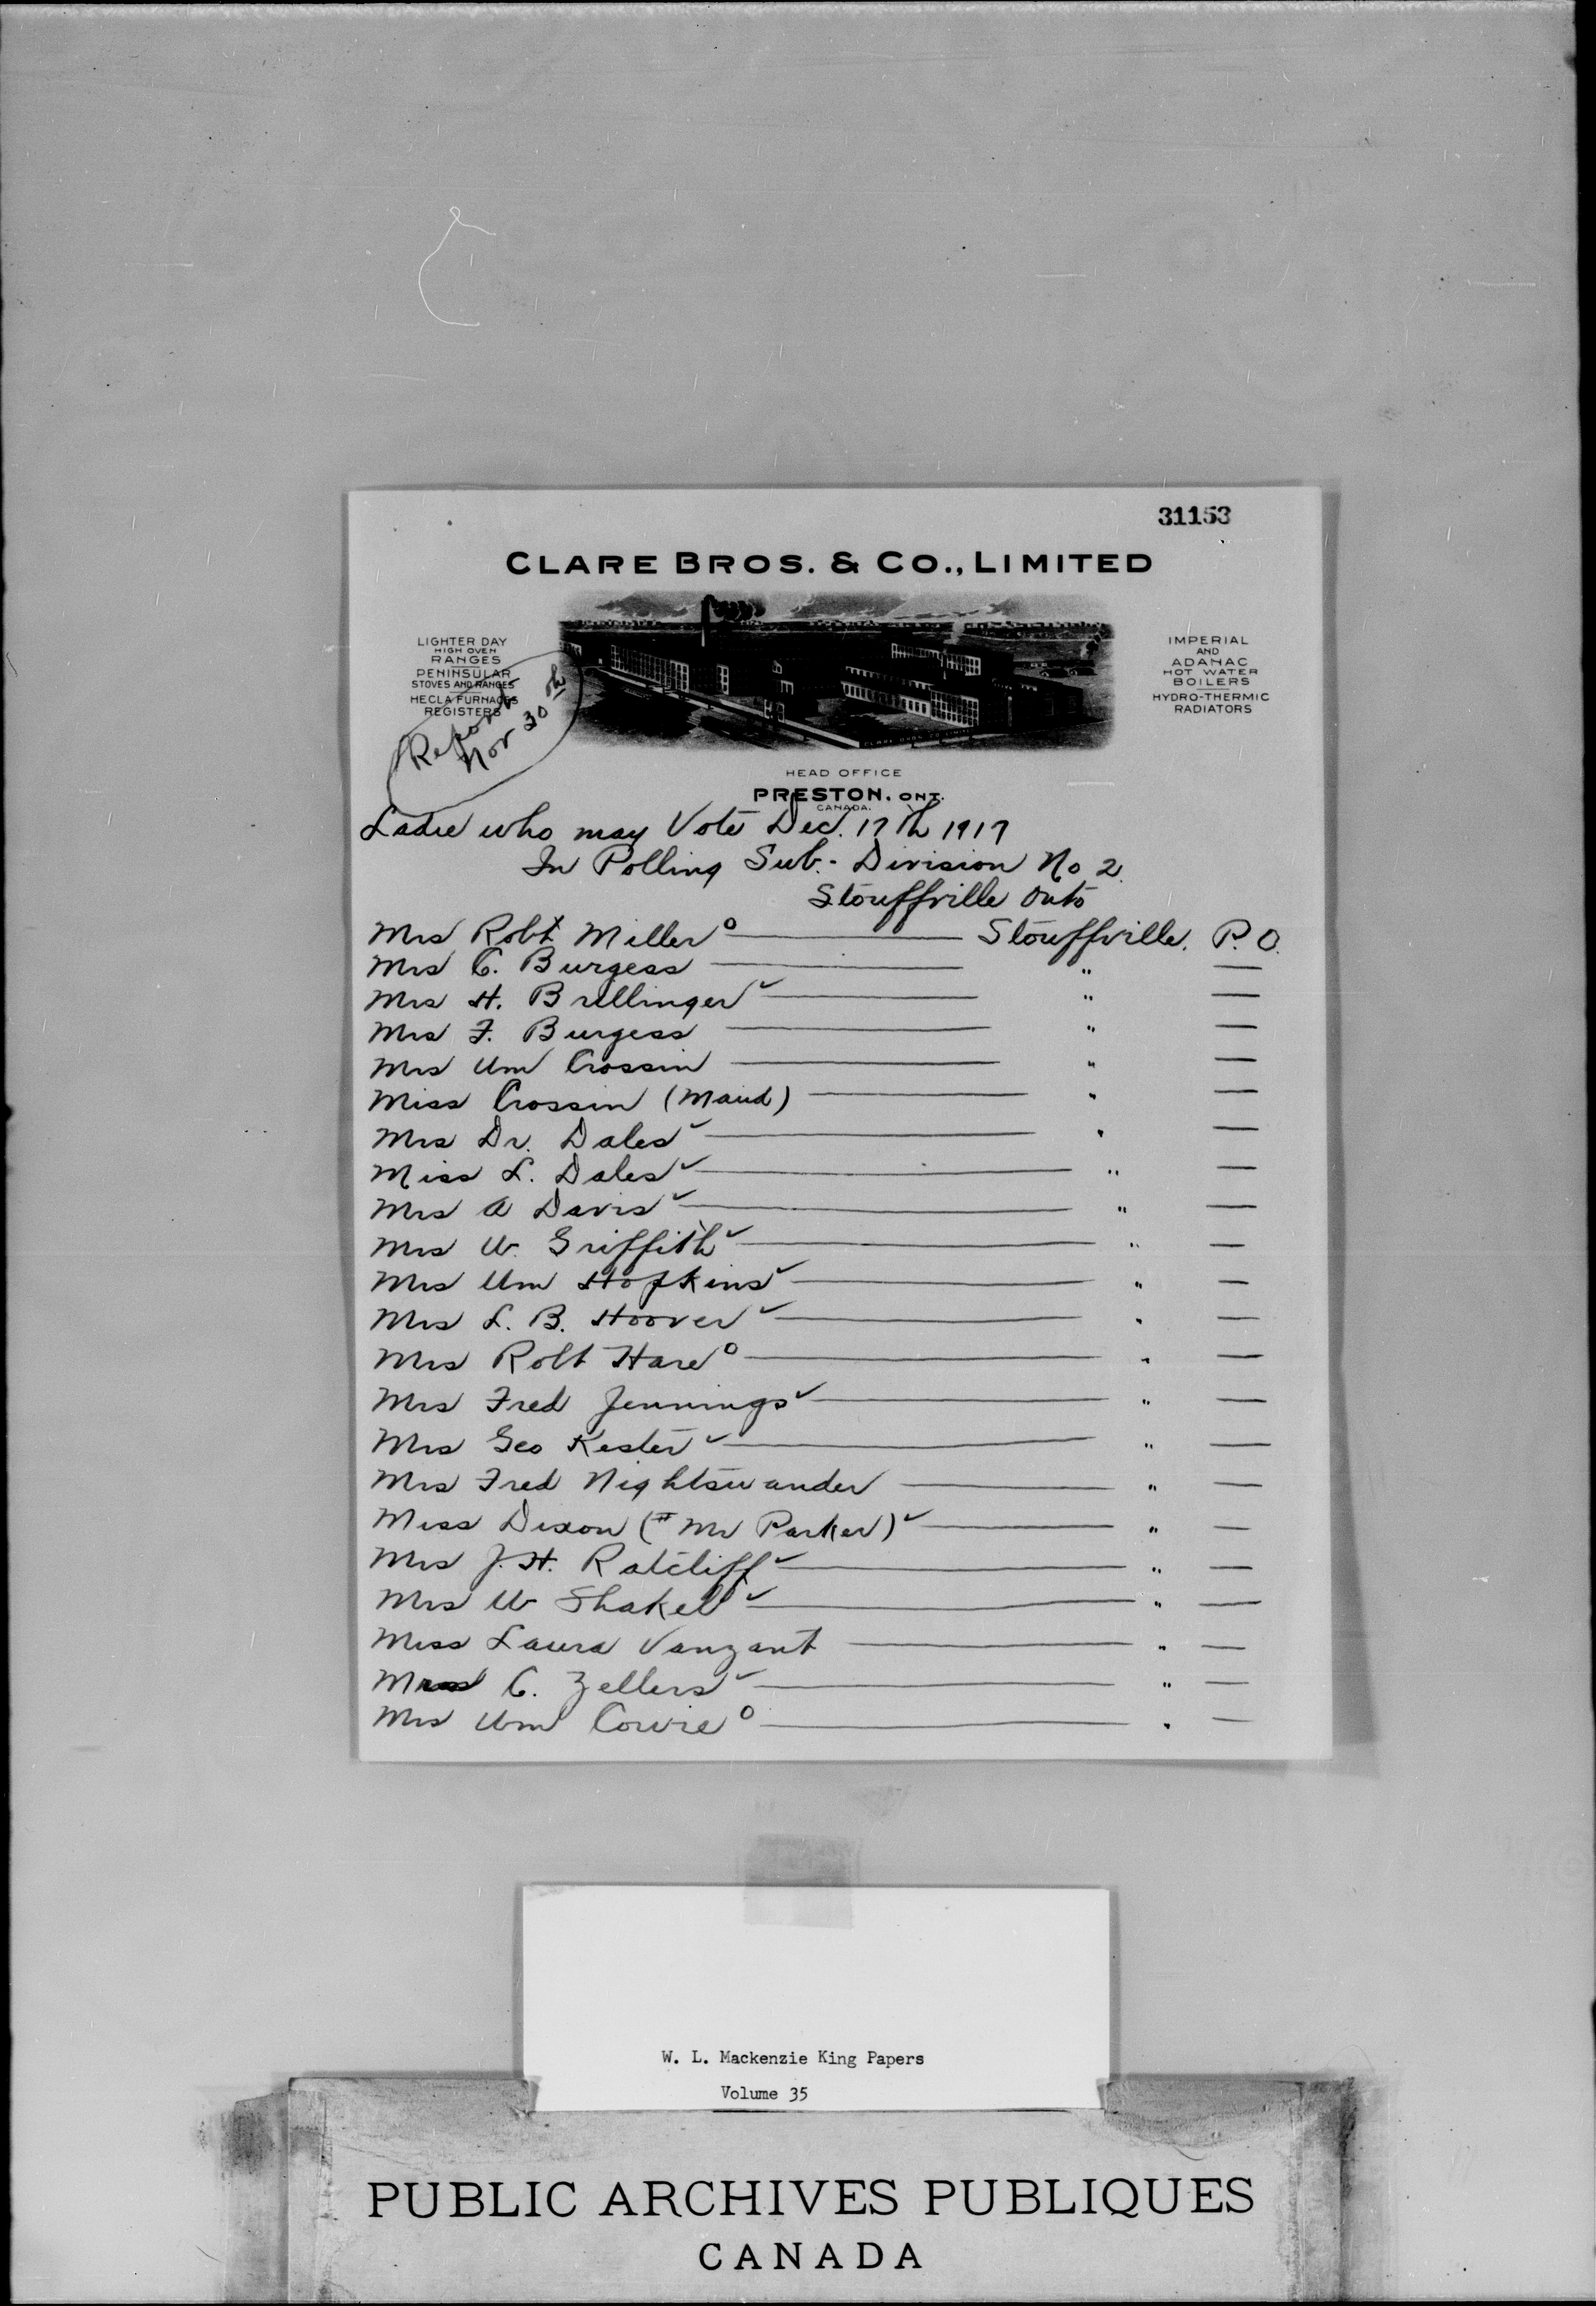 31153
CLARE BROS. & CO., LIMITED
LIGHTER DAY
HIGH OVEN
RANGES
PENINSULAR
STOVES AND RANGES
HECLA FURNACES
REGISTERS
IMPERIAL
AND
ADANAC
HOT WATER
BOILERS
HYDRO-THERMIC
RADIATORS
Report
Nov 30th
HEAD OFFICE
PRESTON, ONT.
CANADA.
Ladie who may Vote Dec. 17th 1917
In Polling Sub.- Division No 2.
Stouffville Onto
Mrs Robt Miller o — Stouffville. P.O.
Mrs C. Burgess — " —
Mrs H. Brillinger ✓ — " —
Mrs F. Burgess — " —
Mrs Wm Crossin — " —
Miss Crossin (Maud) — " —
Mrs Dr. Dales ✓ — " —
Miss L. Dales ✓ — " —
Mrs A Davis ✓ — " —
Mrs W. Griffith ✓ — " —
Mrs Wm Hopkins ✓ — " —
Mrs L. B. Hoover ✓ — " —
Mrs Robt Hare o — " —
Mrs Fred Jennings ✓ — " —
Mrs Geo Kester ✓ — " —
Mrs Fred Nightswander — " —
Miss Dixon (# Mr Parker) ✓ — " —
Mrs J. H. Ratcliff ✓ — " —
Mrs W Shakel ✓ — " —
Miss Laura Vanzant — " —
Mrs C. Zellers ✓ — " —
Mrs Wm Cowie o — " —
W. L. Mackenzie King Papers
Volume 35
PUBLIC ARCHIVES PUBLIQUES
CANADA